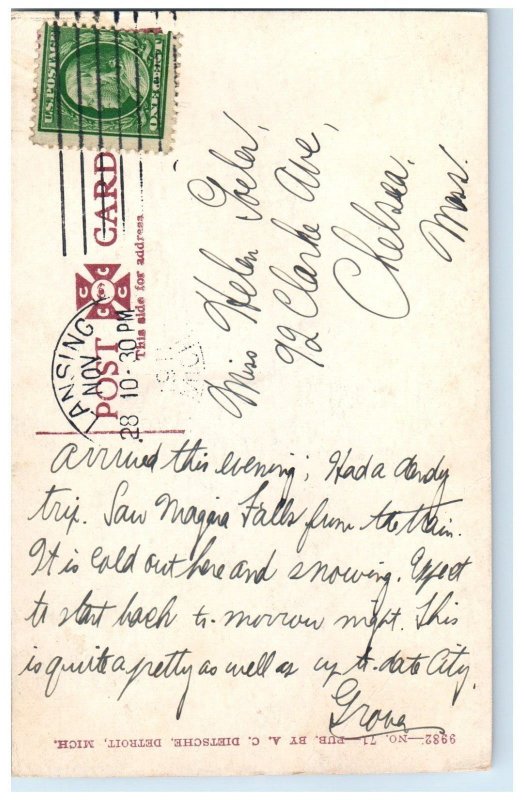 U.S. POSTAGE
ONE CENT
POST CARD
This side for address
LANSING
NOV
28 10-30 PM
MICH
Miss Helen
92 Clarke Ave,
Chelsea,
Mass.
Arrived this evening; Had a dandy
trip. Saw Niagra Falls from the train.
It is cold out here and snowing. Expect
to start back to-morrow night. This
is quite a pretty as well as up to-date City.
Grover
9982—NO. 71. PUB. BY A. C. DIETSCHE, DETROIT, MICH.